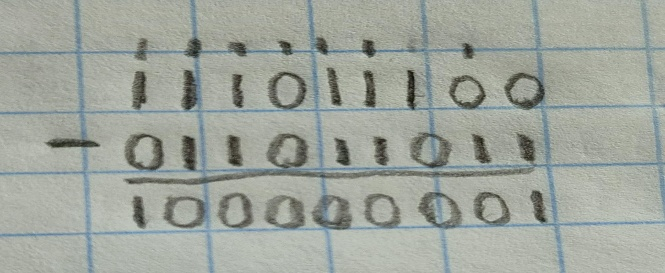 111011100
- 011011011
100000001